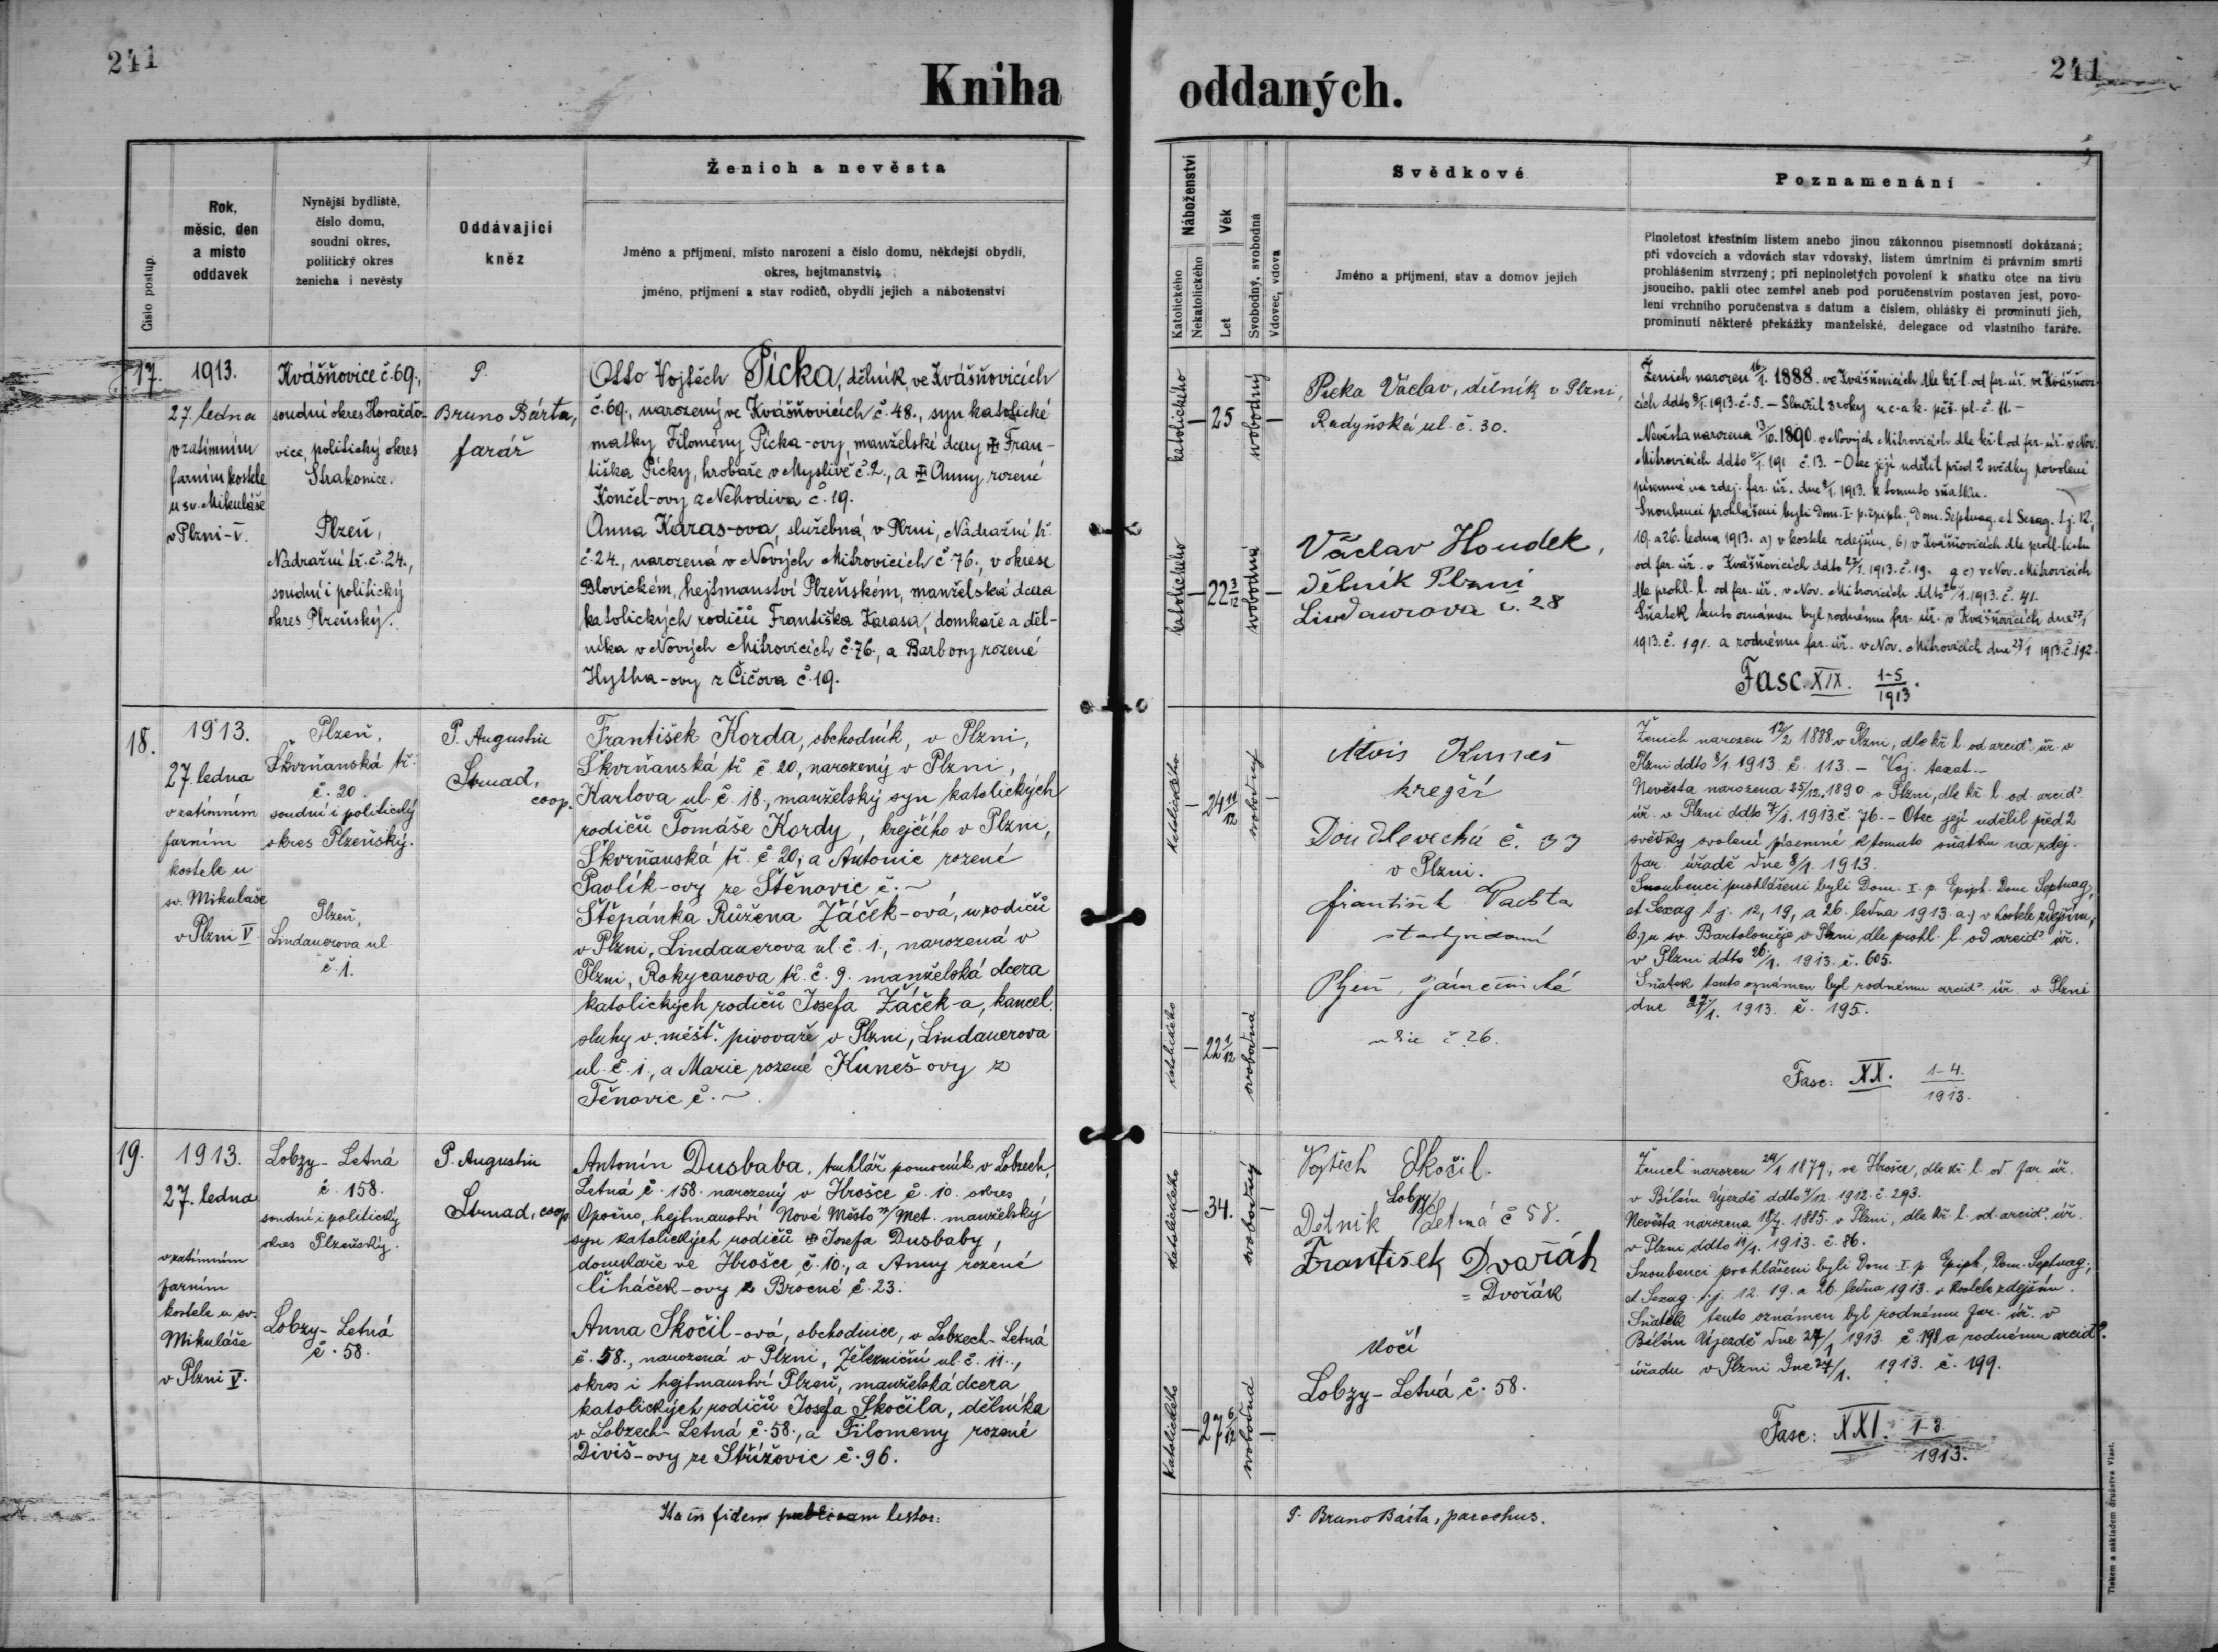 241
241
Kniha oddaných.
Číslo postup.
Rok,
měsíc, den
a místo
oddavek
Nynější bydliště,
číslo domu,
soudní okres,
politický okres
ženicha i nevěsty
Oddávající
kněz
Ženich a nevěsta
Jméno a příjmení, místo narození a číslo domu, někdejší obydlí,
okres, hejtmanství;
jméno, příjmení a stav rodičů, obydlí jejich a náboženství
Náboženství
Katolického
Nekatolického
Věk
Let
Svobodný, svobodná
Vdovec, vdova
Svědkové
Jméno a příjmení, stav a domov jejich
Poznamenání
Plnoletost křestním listem anebo jinou zákonnou písemností dokázaná;
při vdovcích a vdovách stav vdovský, listem úmrtním či právním smrti
prohlášením stvrzený; při neplnoletých povolení k sňatku otce na živu
jsoucího, pakli otec zemřel aneb pod poručenstvím postaven jest, povo-
lení vrchního poručenstva s datum a číslem, ohlášky či prominutí jich,
prominutí některé překážky manželské, delegace od vlastního faráře.
17.
1913.
27. ledna
v zatímním
farním kostele
u sv. Mikuláše
v Plzni-V.
Kvášňovice č. 69.,
soudní okres Horažďo-
vice, politický okres
Strakonice.
Plzeň,
Nádražní tř. č. 24.,
soudní i politický
okres Plzeňský.
P.
Bruno Bárta,
farář
Otto Vojtěch Pícka, dělník, ve Kvášňovicích
č. 69., narozený ve Kvášňovicích č. 48., syn katolické
matky Filomény Pícka-ovy, manželské dcery Fran-
tiška Pícky, hrobaře v Myslivě č. 2., a Anny rozené
Končel-ovy z Nehodiva č. 19.
Anna Karas-ova, služebná, v Plzni, Nádražní tř.
č. 24., narozená v Nových Mitrovicích č. 76., v okrese
Blovickém, hejtmanství Plzeňském, manželská dcera
katolických rodičů Františka Karasa, domkaře a děl-
níka v Nových Mitrovicích č. 76., a Barbory rozené
Hytha-ovy z Čičova č. 19.
katolického
25
svobodný
katolického
22 3/12
svobodná
Picka Václav, dělník v Plzni,
Radyňská ul. č. 30.
Václav Houdek,
dělník Plzni
Lindaurova č. 28
Ženich narozen 16/1. 1888. ve Kvášňovicích dle kř. l. od far. úř. ve Kvášňovi-
cích ddto 8/1. 1913. č. 5. – Sloužil 3 roky u c. a k. pěš. pl. č. 11. –
Nevěsta narozena 13/10. 1890. v Nových Mitrovicích dle kř. l. od far. úř. v Nov.
Mitrovicích ddto 191 č. 13. – Otec její udělil před 2 svědky povolení
písemné na zdej. far. úř. dne 8/1. 1913. k tomuto sňatku.
Snoubenci prohlášeni byli Dom. I. p. Epiph., Dom. Septuag. et Sexag. t. j. 12.,
19. a 26. ledna 1913. a) v kostele zdejším, b) v Kvášňovicích dle prohl. listu
od far. úř. v Kvášňovicích ddto 27/1. 1913. č. 19. a c) v Nov. Mitrovicích
dle prohl. l. od far. úř. v Nov. Mitrovicích ddto 26/1. 1913. č. 41.
Sňatek tento oznámen byl rodnému far. úř. v Kvášňovicích dne 27/1
1913. č. 191. a rodnému far. úř. v Nov. Mitrovicích dne 27/1 1913. č. 192.
Fasc. XIX. 1-5/1913.
18.
1913.
27. ledna
v zatímním
farním
kostele u
sv. Mikuláše
v Plzni V
Plzeň,
Škvrňanská tř.
č. 20
soudní i politický
okres Plzeňský.
Plzeň,
Lindauerova ul.
č. 1.
P. Augustin
Strnad,
coop.
František Korda, obchodník, v Plzni,
Škvrňanská tř. č. 20, narozený v Plzni,
Karlova ul. č. 18., manželský syn katolických
rodičů Tomáše Kordy, krejčího v Plzni,
Škvrňanská tř. č. 20; a Antonie rozené
Pavlík-ovy ze Štěnovic č. ~
Štěpánka Růžena Žáček-ová, u rodičů
v Plzni, Lindauerova ul. č. 1., narozená v
Plzni, Rokycanova tř. č. 9. manželská dcera
katolických rodičů Josefa Žáček-a, kancel.
sluhy v měšť. pivovaře v Plzni, Lindauerova
ul. č. 1., a Marie rozené Kuneš-ovy z
Těnovic č. ~
katolického
24 11/12
svobodný
katolického
22 1/12
svobodná
Alois Kuneš
krejčí
Doudlevecká č. 33
v Plzni.
František Pachta
Plzeň, Zámečnická
ulice č. 26.
Ženich narozen 12/2 1888. v Plzni, dle kř. l. od arcid. úř. v
Plzni ddto 8/1. 1913. č. 113. – Voj. taxat. –
Nevěsta narozena 25/12. 1890 v Plzni, dle kř. l. od arcid.
úř. v Plzni ddto 7/1. 1913. č. 76. – Otec její udělil před 2
svědky svolení písemné k tomuto sňatku na zdej.
far. úřadě dne 8/1. 1913.
Snoubenci prohlášeni byli Dom. I. p. Epiph. Dom Septuag.
et Sexag. t. j. 12, 19, a 26. ledna 1913. a.) v kostele zdejším,
b.) u sv. Bartoloměje v Plzni dle prohl. l. od arcid. úř.
v Plzni ddto 26/1. 1913. č. 605.
Sňatek tento oznámen byl rodnému arcid. úř. v Plzni
dne 27/1. 1913. č. 195.
Fasc: XX. 1-4./1913.
19.
1913.
27. ledna
v zatímním
farním
kostele u sv.
Mikuláše
v Plzni V.
Lobzy-Letná
č. 158.
soudní i politický
okres Plzeňský.
Lobzy-Letná
č. 58.
P. Augustin
Strnad, coop
Antonín Dusbaba, truhlář pomocník v Lobzech,
Letná č. 158. narozený v Hrošce č. 10. okres
Opočno, hejtmanství Nové Město n/Met. manželský
syn katolických rodičů Josefa Dusbaby,
domkaře ve Hrošce č. 10., a Anny rozené
Čiháček-ovy z Brocné č. 23.
Anna Skočil-ová, obchodnice, v Lobzech-Letná
č. 58., narozená v Plzni, Železniční ul. č. 11.,
okres i hejtmanství Plzeň, manželská dcera
katolických rodičů Josefa Skočila, dělníka
v Lobzech-Letná č. 58., a Filomeny rozené
Diviš-ovy ze Střížovic č. 96.
katolického
34.
svobodný
Katolického
27 6/12
svobodná
Vojtěch Skočil.
Lobzy
Dělník Letná č 58.
František Dvořák
= Dvořák
kočí
Lobzy-Letná č. 58.
Ženich narozen 24/1 1879, ve Hrošce, dle kř. l. od far. úř.
v Bílém Újezdě ddto 4/12. 1912. č. 293.
Nevěsta narozena 18/7. 1885. v Plzni, dle kř. l. od arcid. úř.
v Plzni ddto 11/1. 1913. č. 86.
Snoubenci prohlášeni byli Dom. I. p. Epiph., Dom. Septuag.,
et Sexag. t. j. 12. 19. a 26. ledna 1913. v kostele zdejším.
Sňatek tento oznámen byl rodnému far. úř. v
Bílém Újezdě dne 27/1 1913. č. 198 a rodnému arcid.
úřadu v Plzni dne 27/1. 1913. č. 199.
Fasc: XXI. 1-3/1913.
Ita in fidem publicam testor:
P. Bruno Bárta, parochus.
Tiskem a nákladem družstva Vlast.